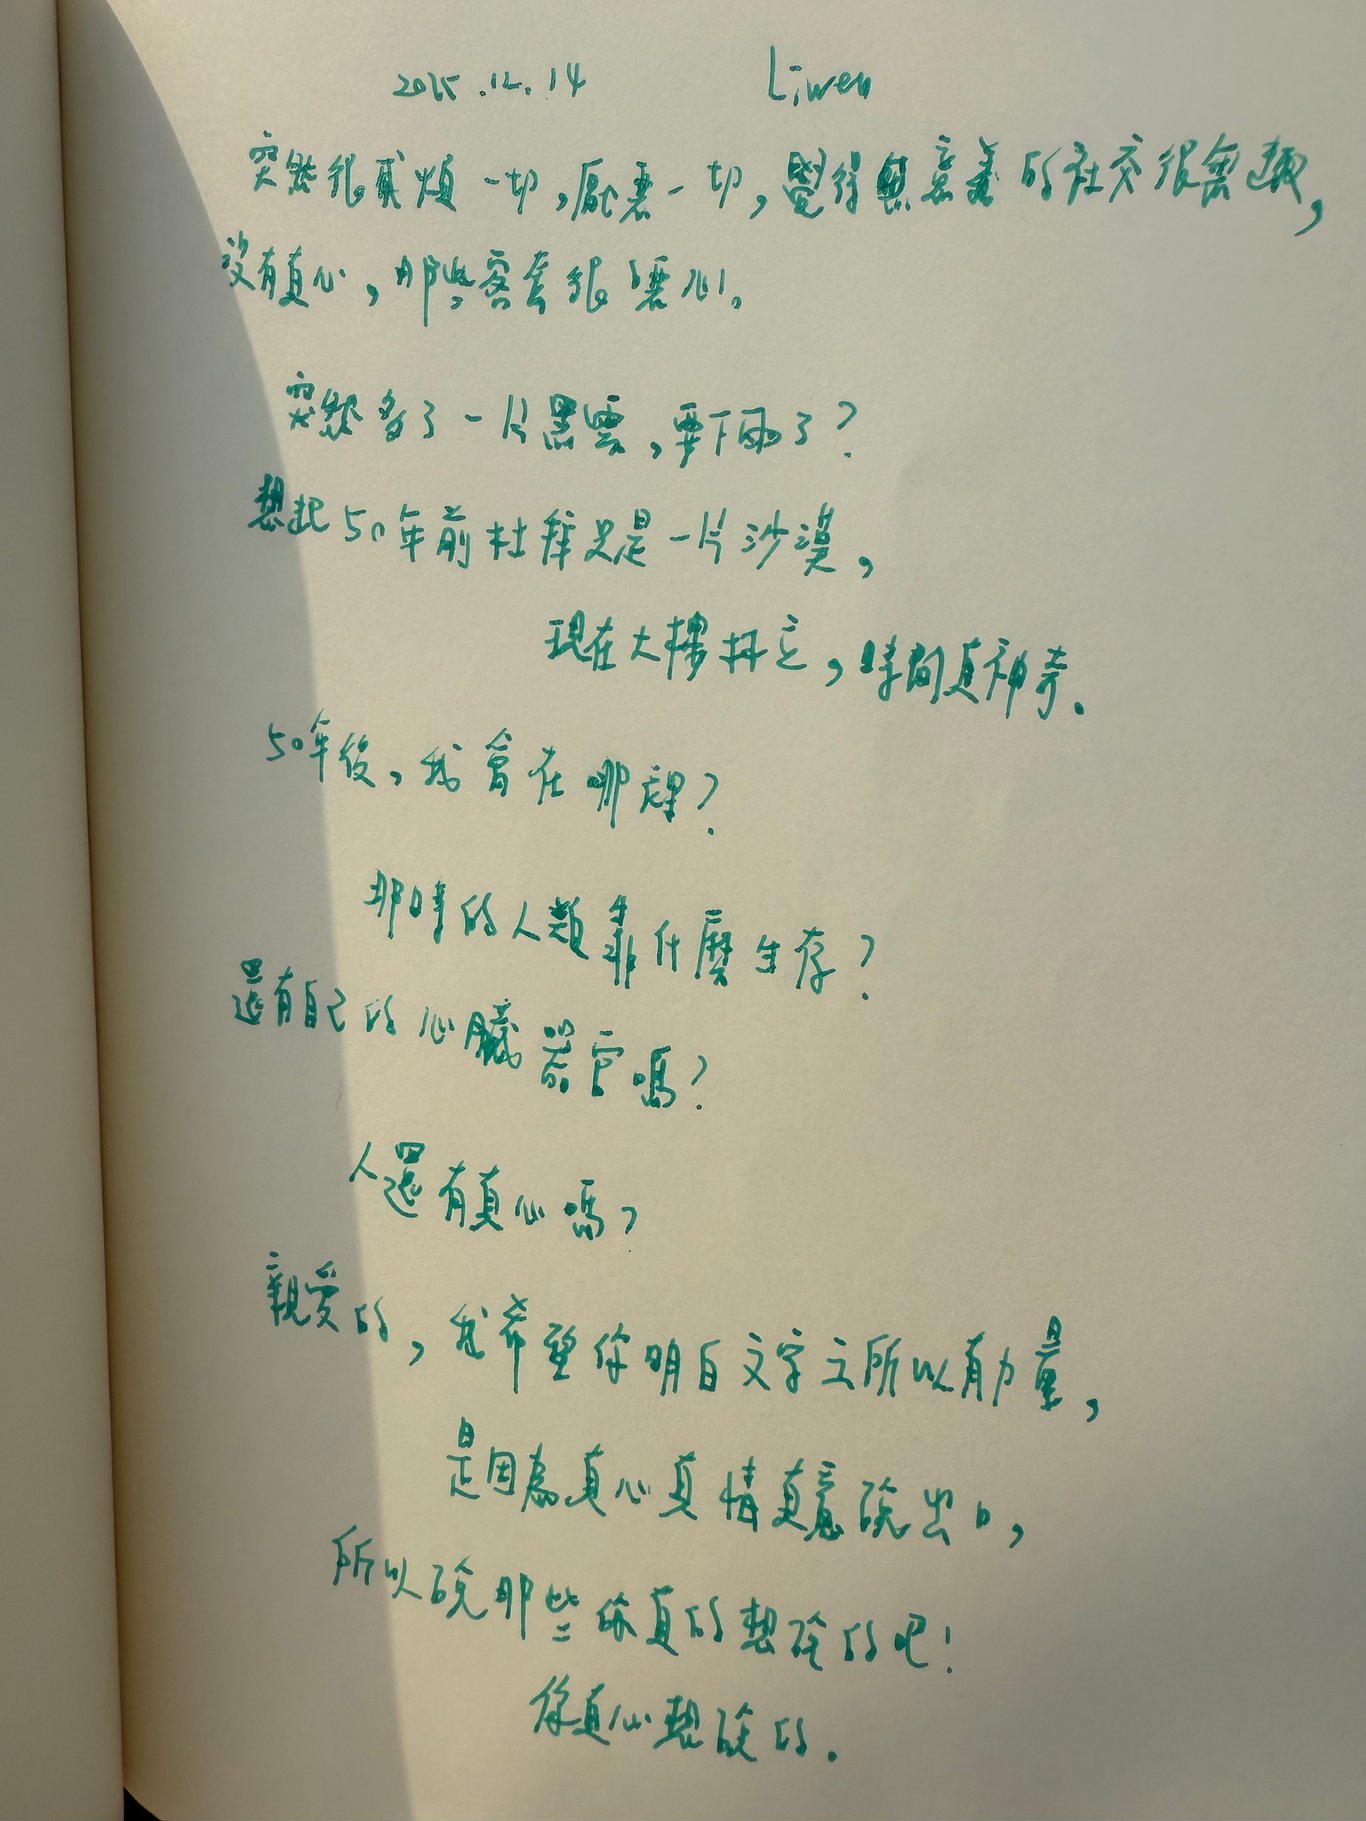 2025.12.14 Liwen
突然很厭煩一切,厭惡一切,覺得無意義的社交很無趣,
沒有真心,那些客套很噁心。
突然多了一片黑雲,要下雨了?
想起50年前杜拜只是一片沙漠,
現在大樓林立,時間真神奇.
50年後,我會在哪裡?
那時的人類靠什麼生存?
還有自己的心臟器官嗎?
人還有真心嗎?
親愛的,我希望你明白文字之所以有力量,
是因為真心真情真意說出口,
所以說那些你真的想說的吧!
你真心想說的.